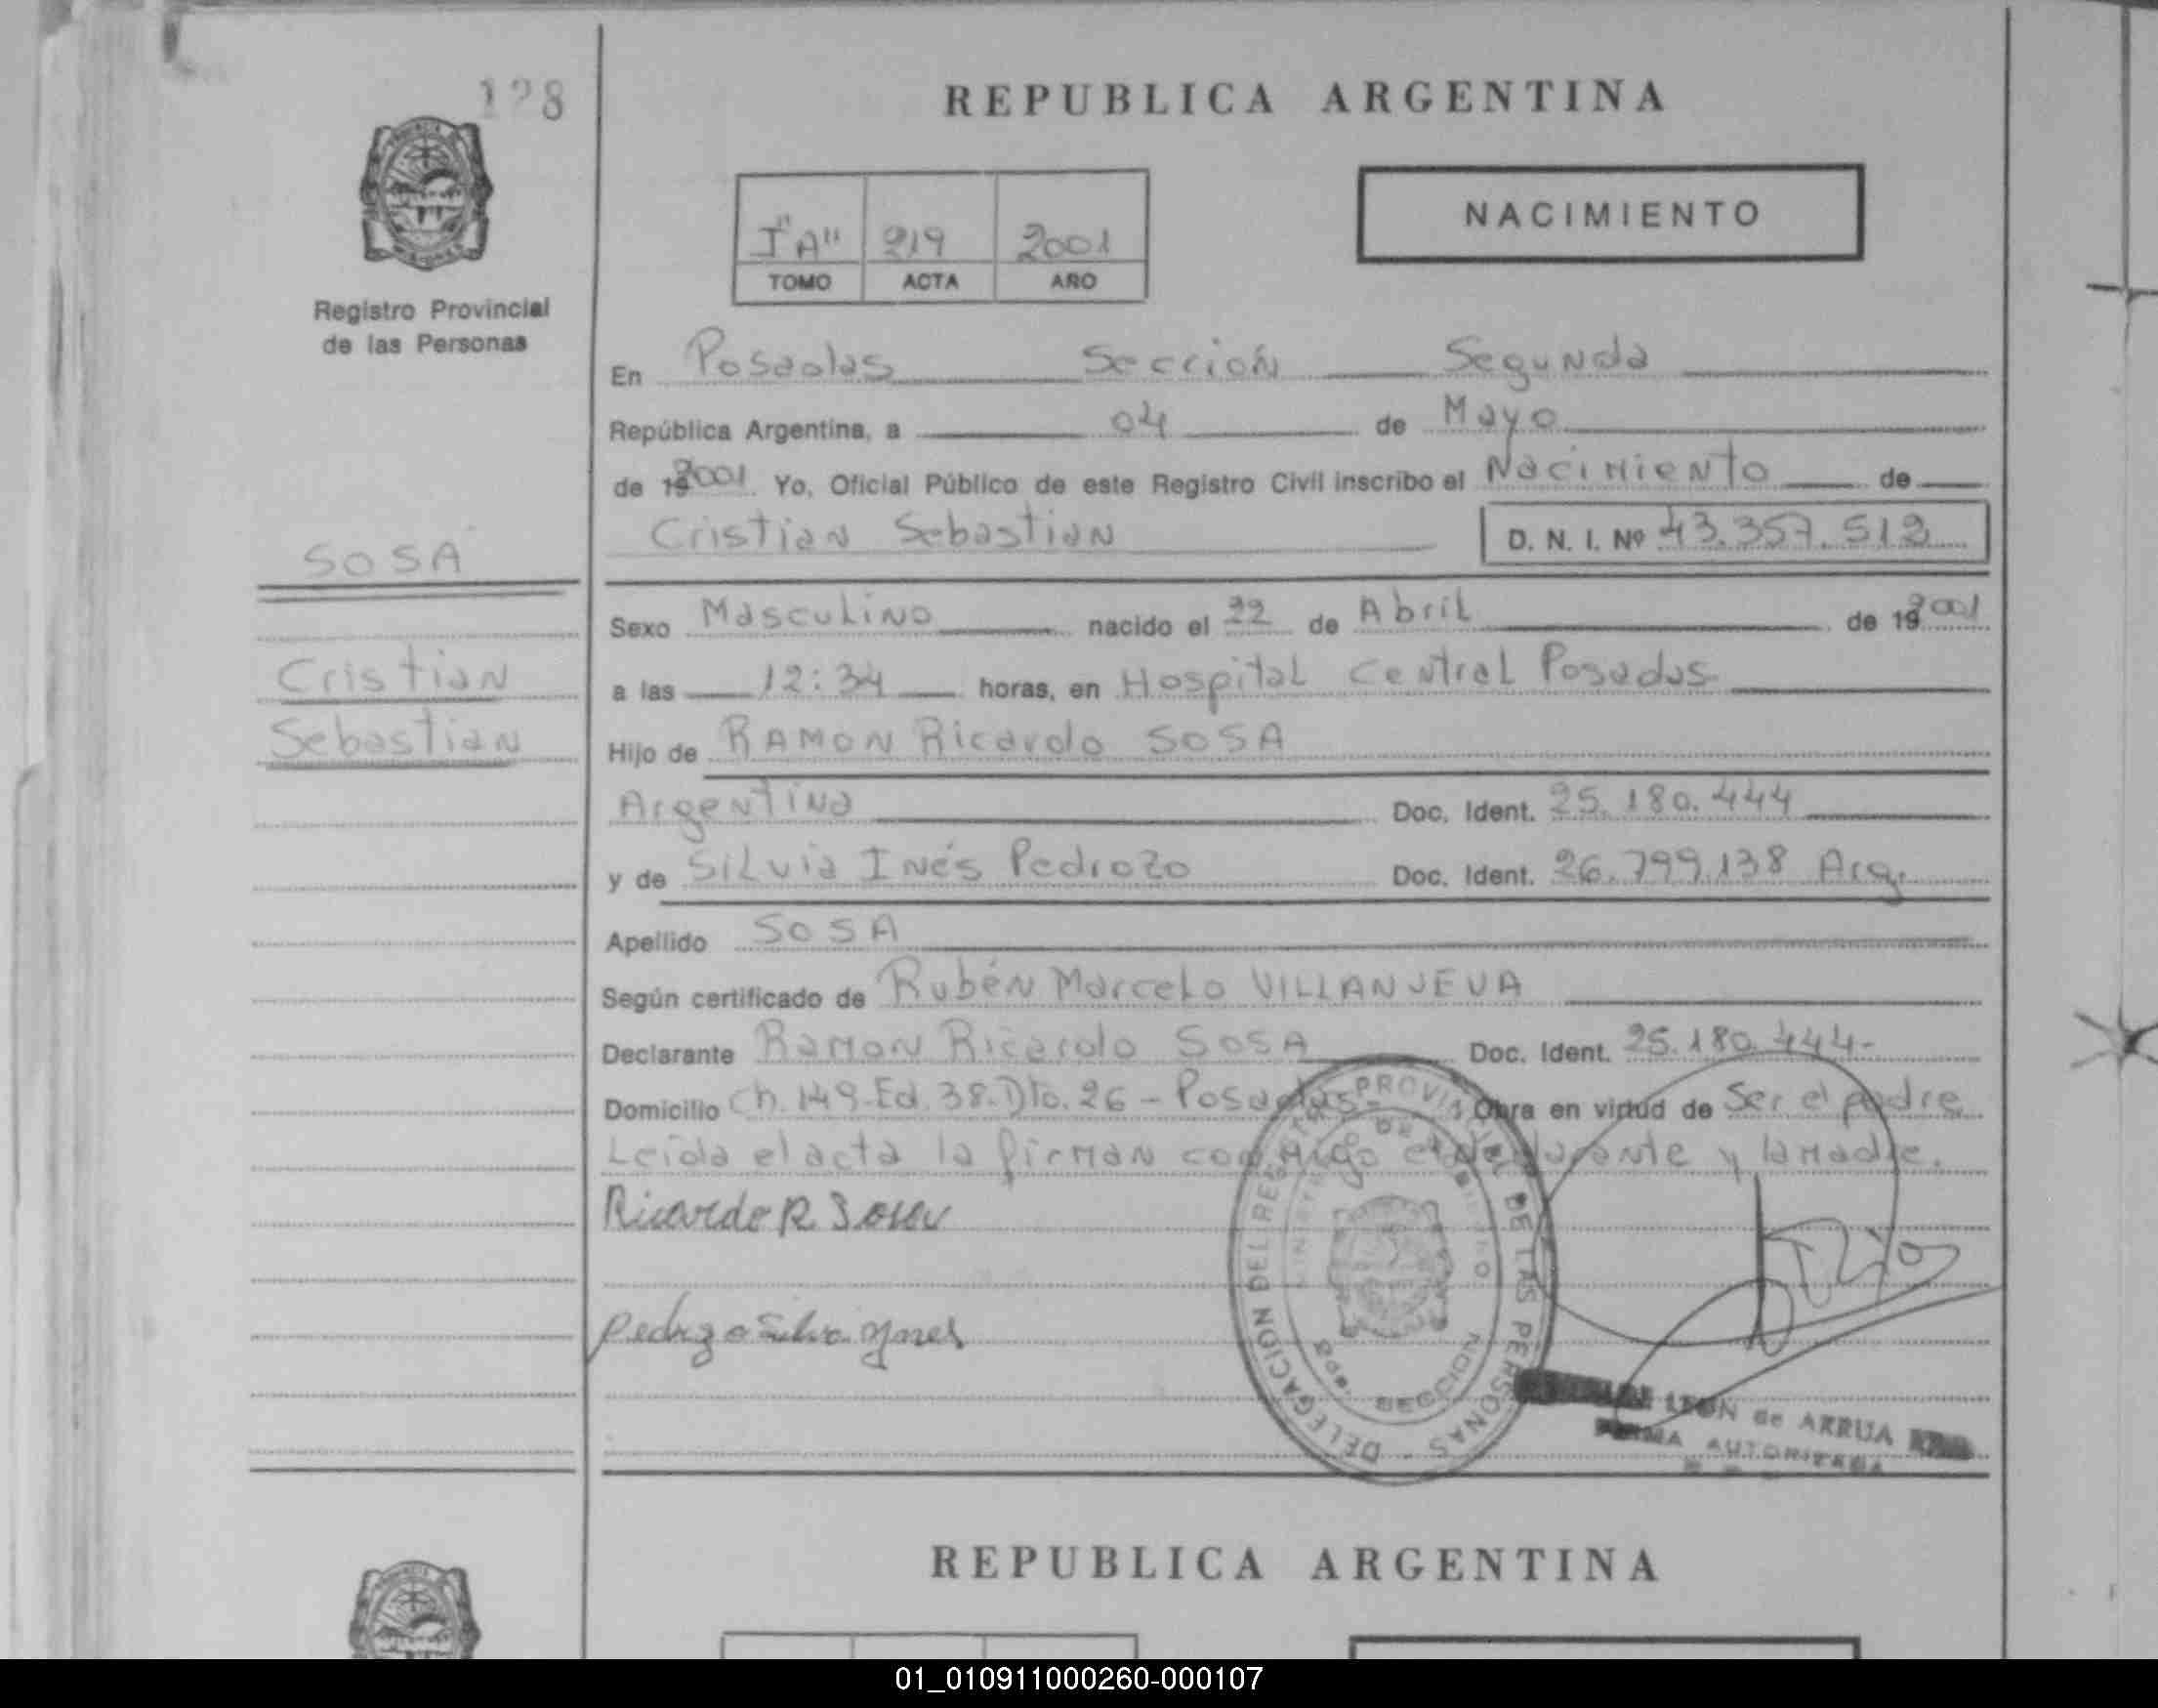 128
REPUBLICA ARGENTINA
NACIMIENTO
I "A" 219 2001
TOMO ACTA AÑO
Registro Provincial
de las Personas
En Posadas Sección Segunda
República Argentina, a 04 de Mayo
de 192001 Yo, Oficial Público de este Registro Civil inscribo el Nacimiento de
Cristian Sebastian D. N. I. Nº 43.357.512
SOSA
Sexo Masculino nacido el 22 de Abril de 192001
Cristian
a las 12:34 horas, en Hospital Central Posadas
Sebastian
Hijo de RAMON Ricardo SOSA
Argentina Doc. Ident. 25.180.444
y de Silvia Inés Pedrozo Doc. Ident. 26.799.138 Arg.
Apellido SOSA
Según certificado de Rubén Marcelo VILLANUEVA
Declarante Ramon Ricardo SOSA Doc. Ident. 25.180.444-
Domicilio Ch. 149-Ed. 38-Dto. 26 - Posadas- Obra en virtud de Ser el padre
Leída el acta la firman conmigo el declarante y la madre.
Ricardo R Sosa
Pedrozo Silvia Ynes
DELEGACION DEL REGISTRO PROVINCIAL DE LAS PERSONAS
2da. SECCION
LEON de ARRUA
FIRMA AUTORIZADA
REPUBLICA ARGENTINA
01_010911000260-000107